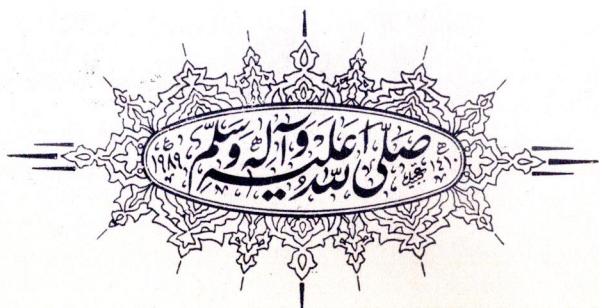 صَلَّى اللّٰهُ عَلَيْهِ وَآلِهٖ وَسَلَّمِ
١٤١٠
١٩٨٩